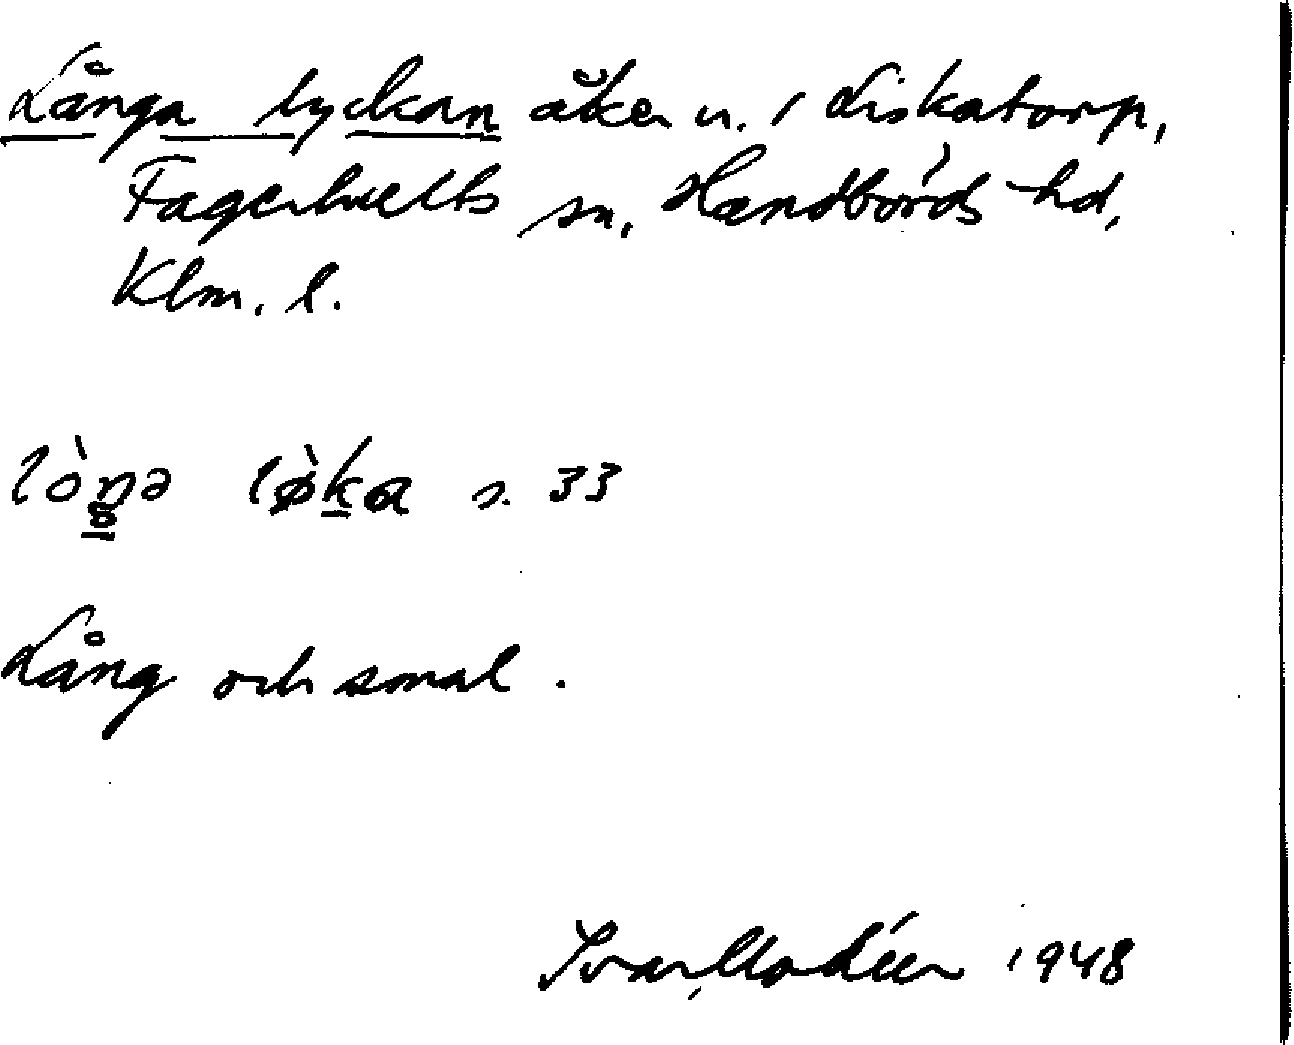 Långa lyckan åker n. 1 Liskatorp,
Fagerhults sn, Handbörds hd,
Klm. l.
lòŋə lø̀ka s. 33
Lång och smal.
Ivar Modéer 1948